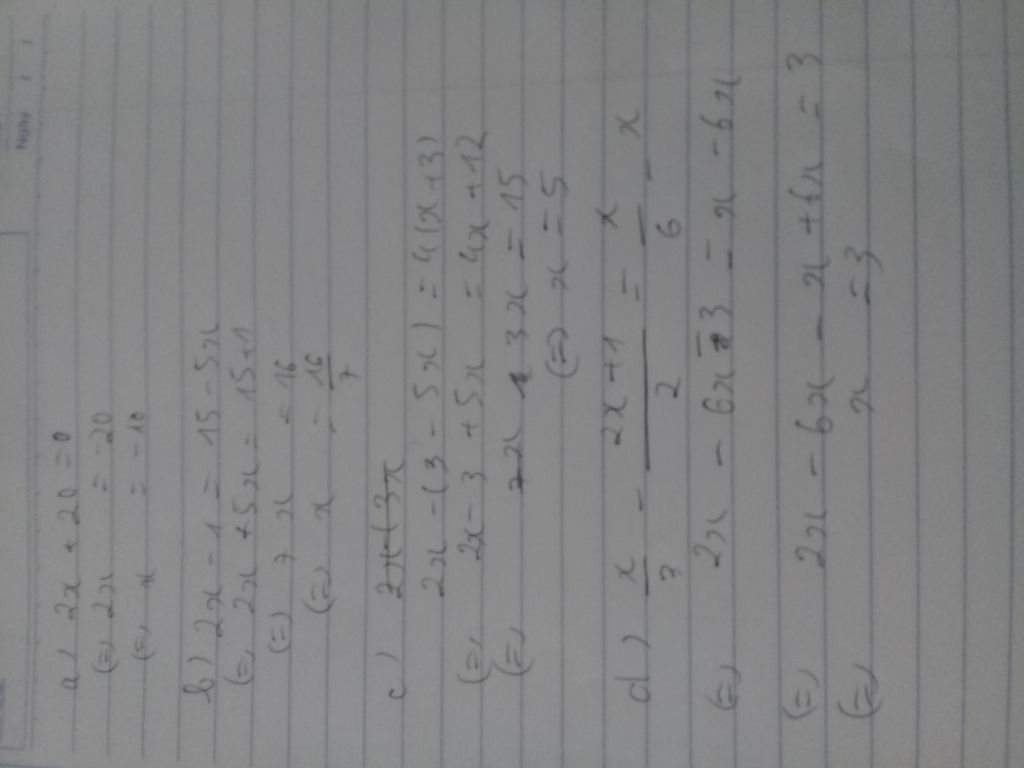 a) 2x + 20 = 0
(=) 2x = -20
(=) x = -10
b) 2x - 1 = 15 - 5x
(=) 2x + 5x = 15 + 1
(=) 7x = 16
(=) x = 16/7
c)
2x - (3 - 5x) = 4(x+3)
(=) 2x - 3 + 5x = 4x + 12
(=) 3x = 15
(=) x = 5
d) x/3 - 2x+1/2 = x/6 - x
(=) 2x - 6x - 3 = x - 6x
(=) 2x - 6x - x + 6x = 3
(=) x = 3